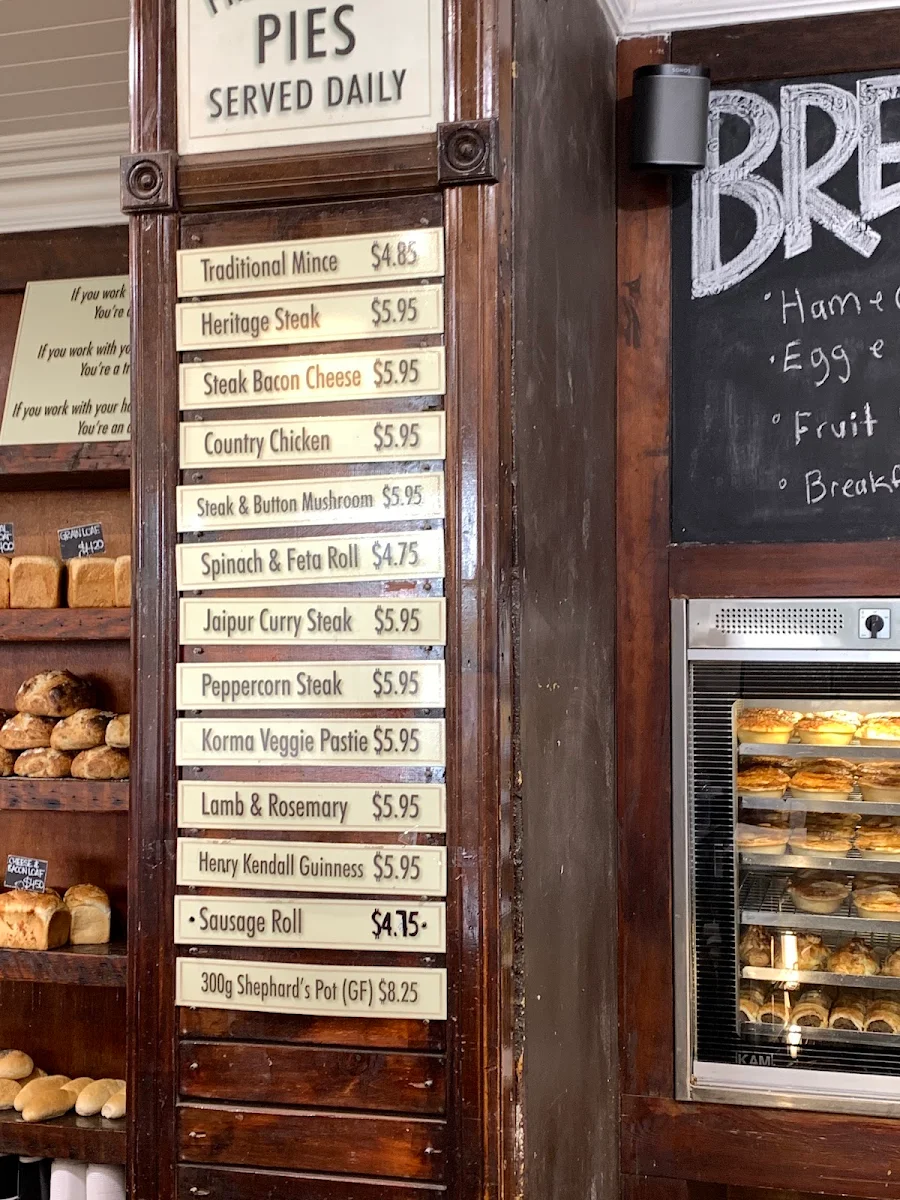 PIES
SERVED DAILY
Traditional Mince $4.85
Heritage Steak $5.95
Steak Bacon Cheese $5.95
Country Chicken $5.95
Steak & Button Mushroom $5.95
Spinach & Feta Roll $4.75
Jaipur Curry Steak $5.95
Peppercorn Steak $5.95
Korma Veggie Pastie $5.95
Lamb & Rosemary $5.95
Henry Kendall Guinness $5.95
• Sausage Roll $4.75 •
300g Shephard's Pot (GF) $8.25
If you work
You're a
If you work with yo
You're a tr
If you work with your ha
You're an a
GRAIN LOAF
$4.20
CHEESE &
BACON LOAF
$4.50
SONOS
BRE
Ham + 
Egg e
Fruit
Breakf
KAM